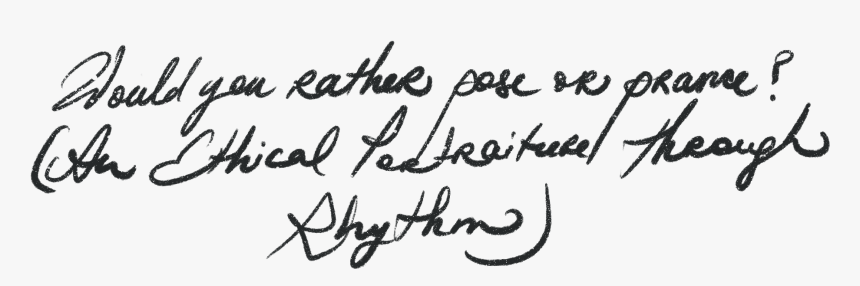 Would you rather pose or prance?
(An Ethical Portraiture through
Rhythm)